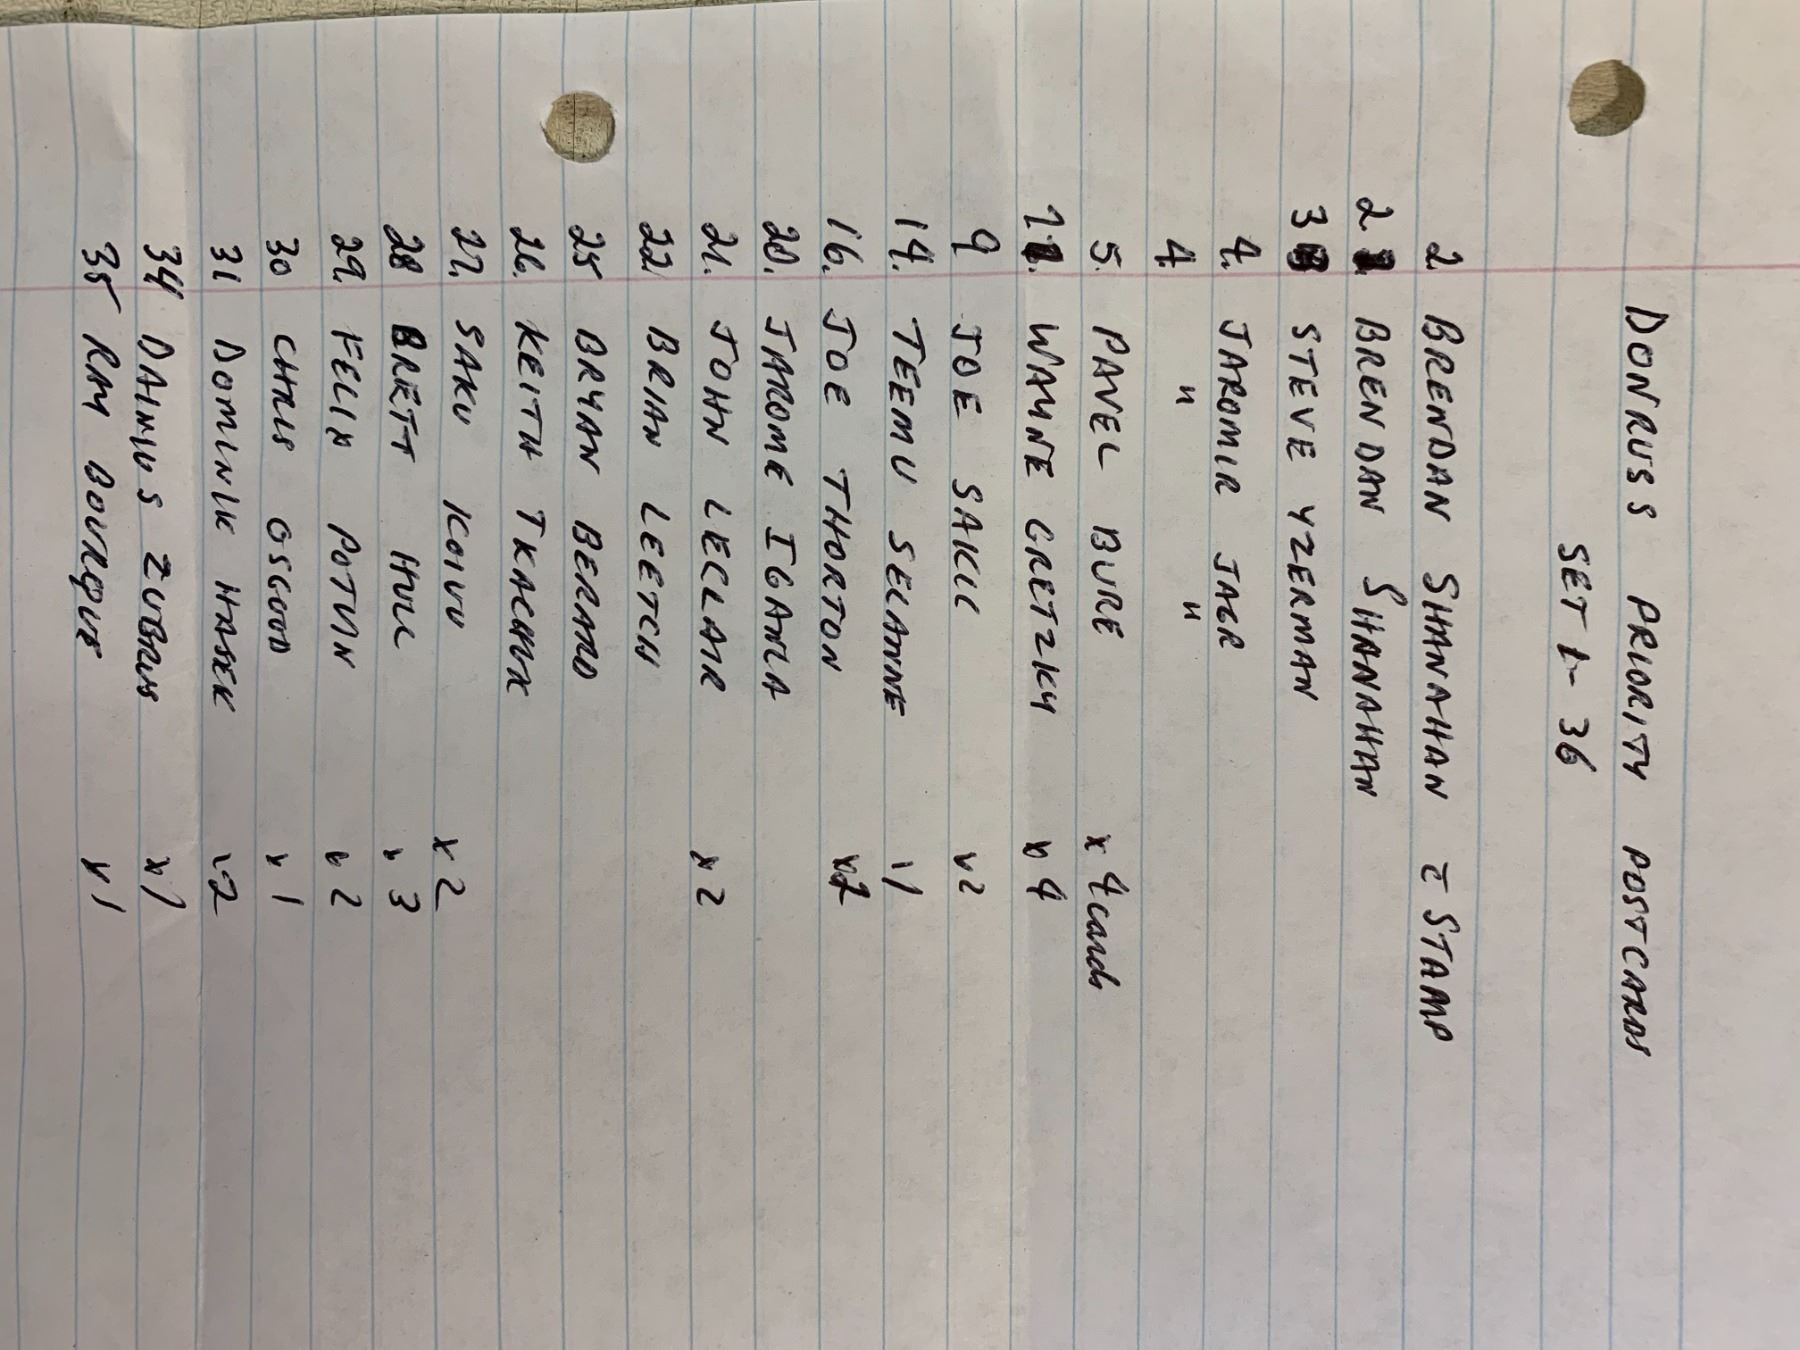 DONRUSS PRIORITY POSTCARDS
SET 1-36
2 BRENDAN SHANAHAN c̄ STAMP
2 BRENDAN SHANAHAN
3 STEVE YZERMAN
4. JAROMIR JAGR
4. " "
5. PAVEL BURE x 4 cards
7 WAYNE GRETZKY x 4
9 JOE SAKIC x2
14. TEEMU SELANNE x1
16. JOE THORTON
20. JAROME IGANLA
21. JOHN LECLAIR x 2
22. BRIAN LEETCH
25 BRYAN BERARD
26. KEITH TKACHUK
27. SAKU KOIVU x 2
28 BRETT HULL x 3
29. FELIX POTVIN x 2
30 CHRIS OSGOOD x 1
31 DOMINIK HASEK x2
34 DAINUS ZUBRUS x1
35 RAY BOURQUE x1